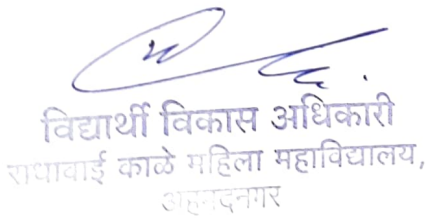 विद्यार्थी विकास अधिकारी
राधाबाई काळे महिला महाविद्यालय,
अहमदनगर